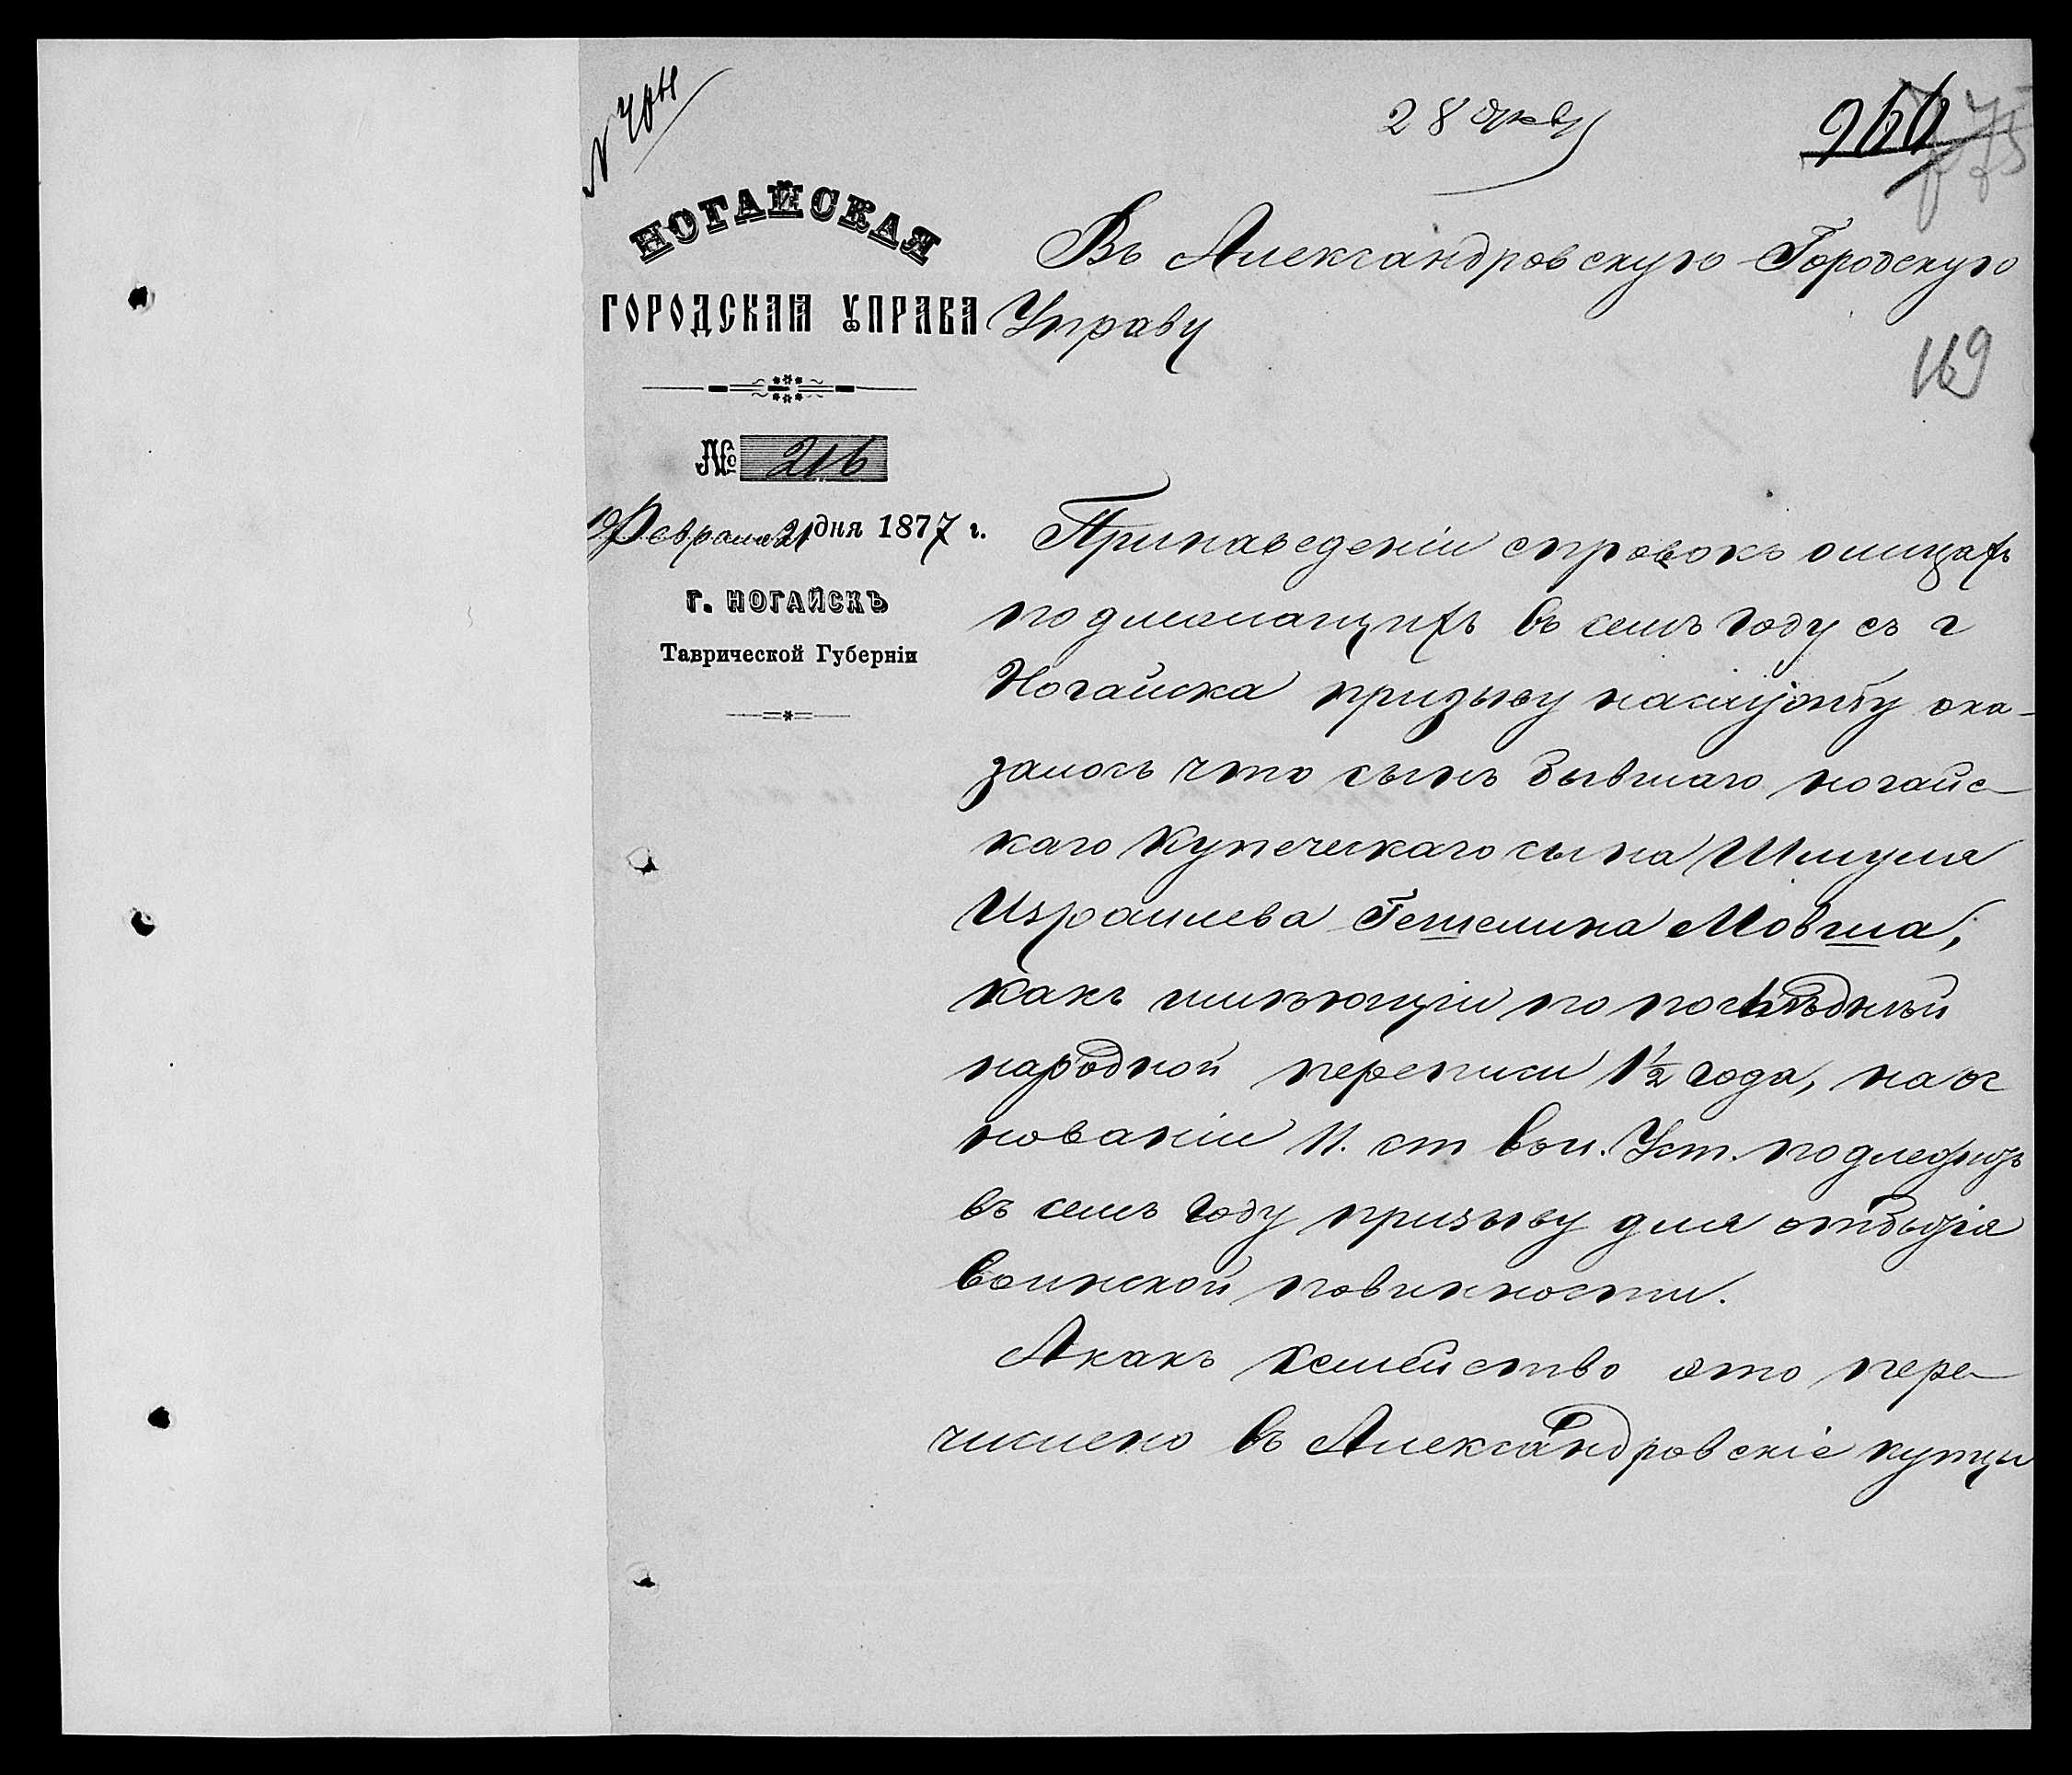 28 Февр
НОГАЙСКАЯ
ГОРОДСКАЯ УПРАВА
№ 216
Февраля 21 дня 1877 г.
г. НОГАЙСКЪ
Таврической Губерніи
Въ Александровскую Городскую
Управу
169
Принаведеніи справокъ олицахъ
подлежащихъ въ семъ году съ г
Ногайска призыву наслужбу ока-
залось что сынъ бывшаго ногайс-
каго Купеческаго сына Шмуля
Израилева Гешелина Мовша,
какъ имѣющій по последнѣй
народной переписи 1½ года, на ос
нованіи 11. ст Вои. Уст. подлежитъ
въ семъ году призыву для отбытія
воинской повинности.
Акакъ семейство это пере-
числено въ Александровскіе купцы